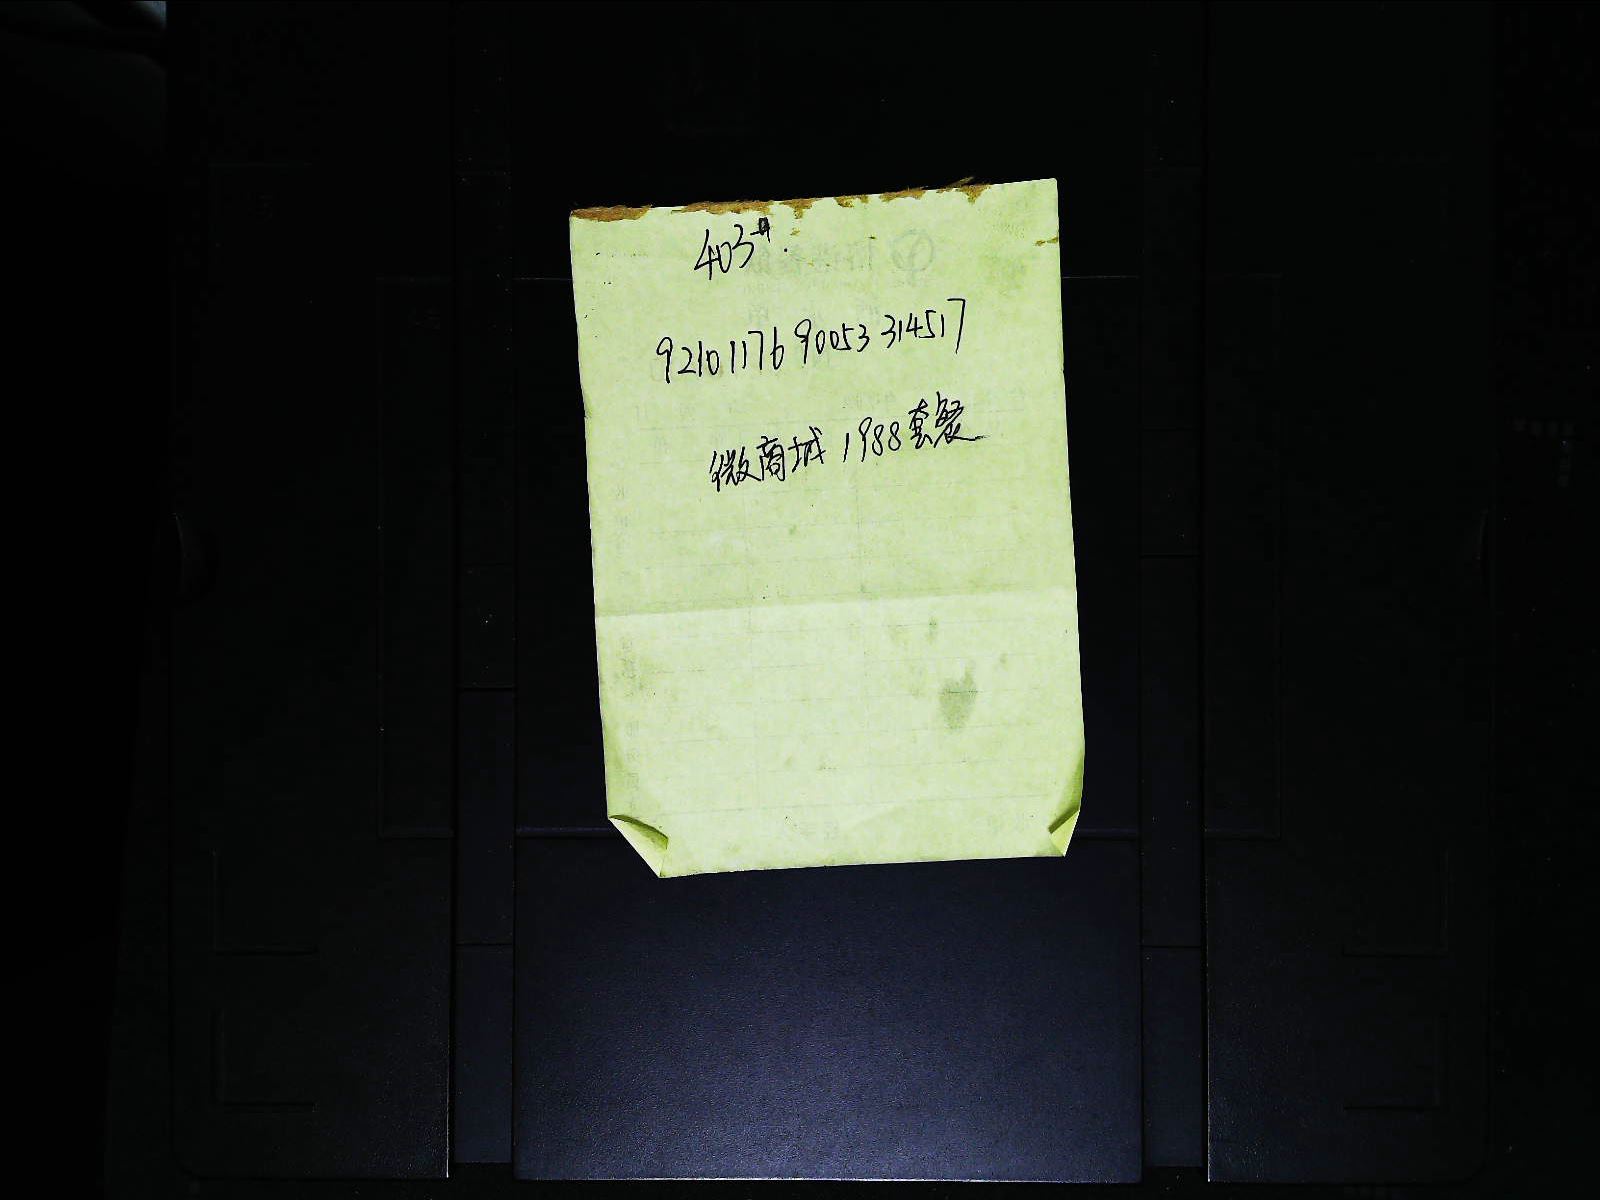 403#.
92101176 90053 314517
微商城 1988套餐